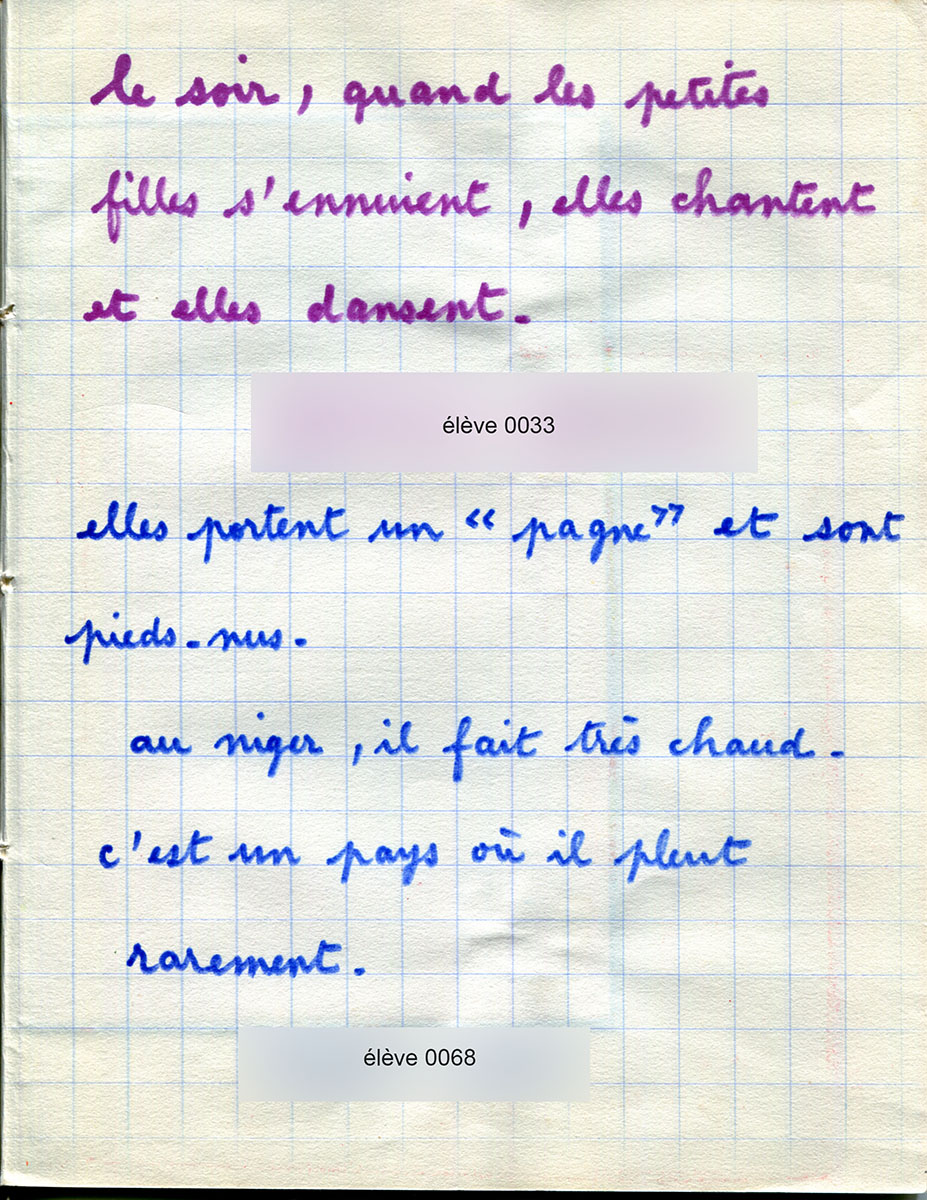 le soir, quand les petites
filles s'ennuient, elles chantent
et elles dansent.
élève 0033
elles portent un "pagne" et sont
pieds-nus.
au niger, il fait très chaud.
c'est un pays où il pleut
rarement.
élève 0068